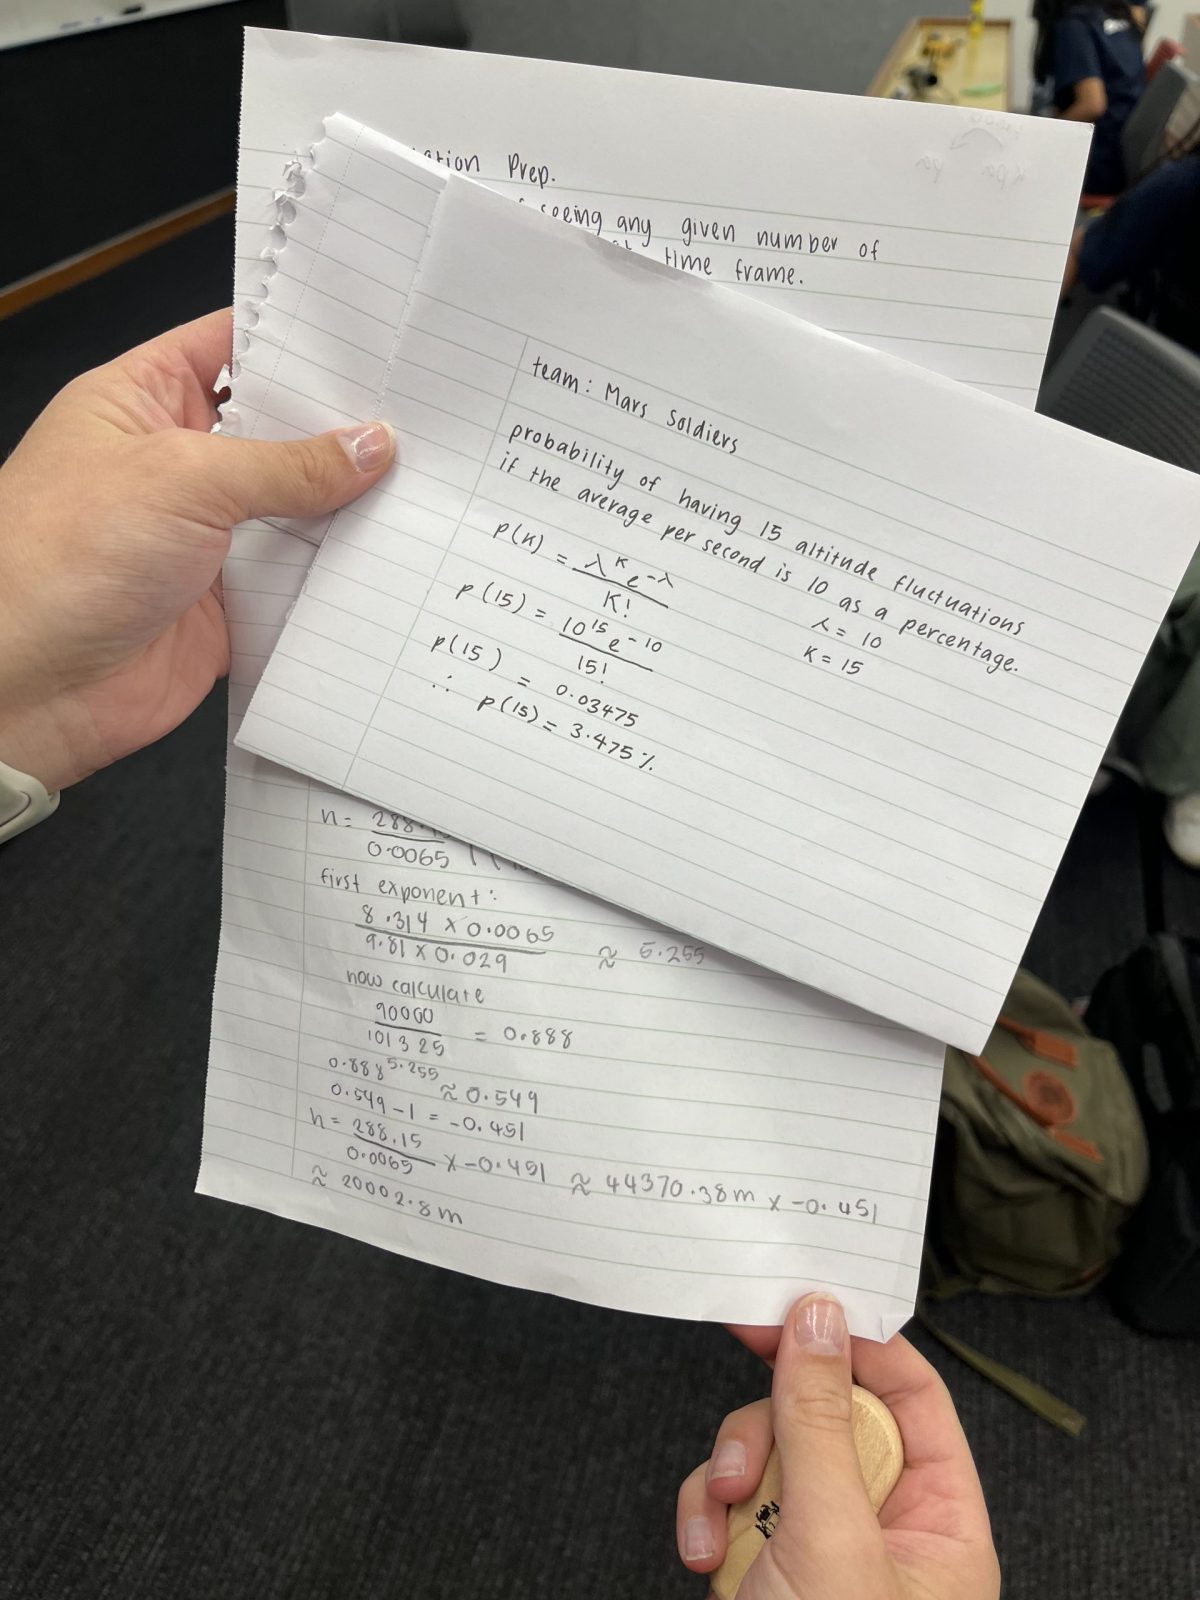 Prep.
seeing any given number of
time frame.
team: Mars Soldiers
probability of having 15 altitude fluctuations
if the average per second is 10 as a percentage.
p(k) = λ^k e^-λ / k!
λ = 10
p(15) = 10^15 e^-10 / 15!
k = 15
p(15) = 0.03475
∴ p(15) = 3.475 %
h = / 0.0065
first exponent:
8.314 x 0.0065 / 9.81 x 0.029 ≈ 5.255
now calculate
90000 / 101325 = 0.888
0.888^5.255 ≈ 0.549
0.549 - 1 = -0.451
h = 288.15 / 0.0065 x -0.451 ≈ 44370.38m x -0.451
≈ 20002.8m